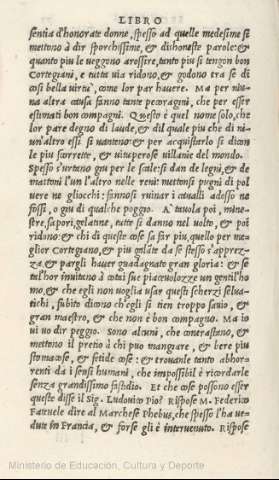 LIBRO
sentia d'honorate donne, spesso ad quelle medesime si
mettono à dir sporchissime, & dishoneste parole: &
quanto piu le ueggono arossire, tanto piu si tengon bon
Cortegiani, e tutta uia ridono, & godono tra se di
cosi bella uirtù, come lor par hauere. Ma per niu-
na altra causa fanno tante pecoragini, che per esser
estimati bon compagni. Questo è quel nome solo, che
lor pare degno di laude, & dil quale piu che di ni-
un'altro essi si uantono: & per acquistarlo si dicon
le piu scorrette, & uituperose uillanie del mondo.
Spesso s'urtano giu per le scale: si dan de legni, & de
mattoni l'un l'altro nelle reni: mettonsi pugni di pol
uere ne gliocchi: fannosi ruinar i caualli adesso ne
fossi, o giu di qualche poggio. A' tauola poi, mine-
stre, sapori, gelatine, tutte si danno nel uolto, & poi
ridono: & chi di queste cose sa far piu, quello per me
glior cortegiano, & piu galãte da se stesso s'apprez-
za, & pargli hauer guadagnato gran gloria: & se
tal'hor inuitano à cotai sue piaceuolezze un gentil'ho
mo, & che egli non uoglia usar questi scherzi selua-
tichi, subito dicono ch'egli si tien troppo sauio, &
gran maestro, & che non è bon compagno. Ma io
ui uo dir peggio. Sono alcuni, che contrastano, &
mettono il pretio à chi puo mangiare, & bere piu
stomacose, & fetide cose: & trouanle tanto abhor-
renti da i sensi humani, che impossibil è ricordarle
senza grandissimo fastidio. Et che cose possono esser
queste disse il Sig. Ludouico Pio? Rispose M. Federico
Fateuele dire al Marchese Phebus, che spesso l'ha ue-
dute in Francia, & forse gli è interuenuto. Rispose
Ministerio de Educación, Cultura y Deporte